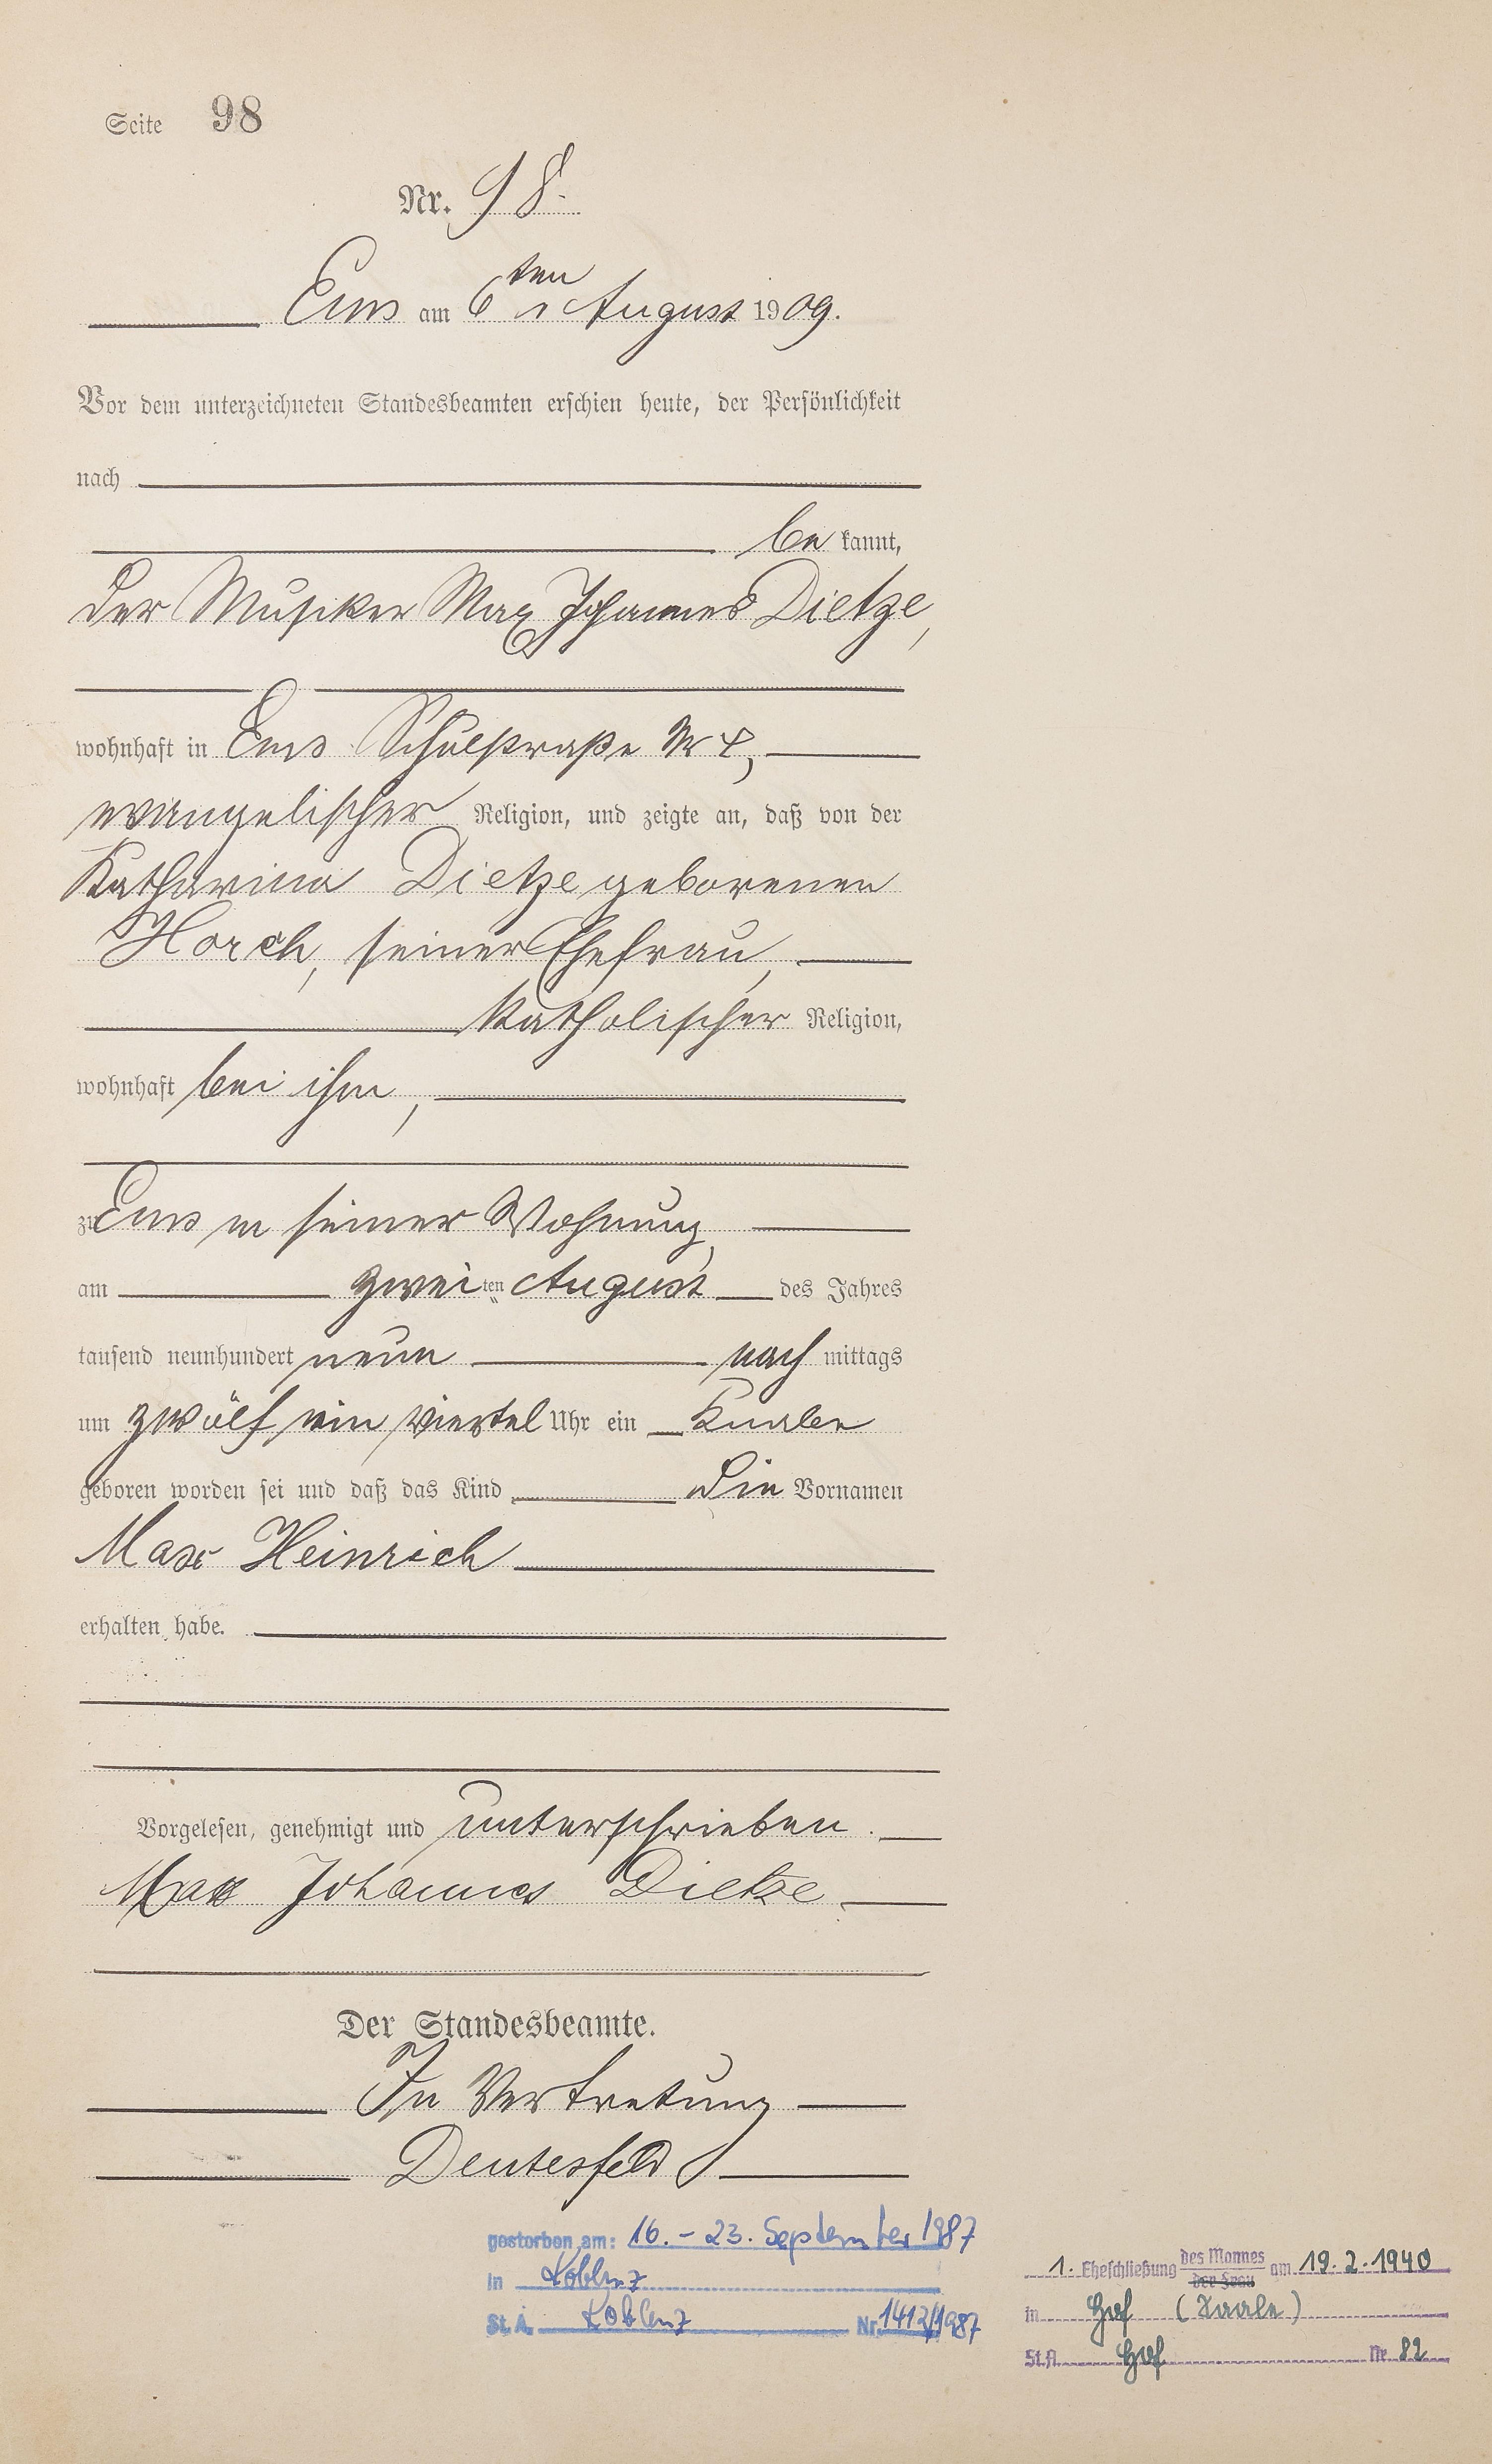 Seite 98
Nr. 98.
Ems am 6ten August 1909.
Vor dem unterzeichneten Standesbeamten erschien heute, der Persönlichkeit
nach
be kannt,
der Musiker Max Johannes Dietze,
wohnhaft in Ems Schulstraße Nr
evangelischer Religion, und zeigte an, daß von der
Katharina Dietze geborenen
Horch, seiner Ehefrau,
katholischer Religion,
wohnhaft bei ihm,
zu Ems in seiner Wohnung,
am zwei ten August des Jahres
tausend neunhundert neun nach mittags
um zwölf ein viertel Uhr ein Knabe
geboren worden sei und daß das Kind die Vornamen
Max Heinrich
erhalten habe.
Vorgelesen, genehmigt und unterschrieben.
Max Johannes Dietze
Der Standesbeamte.
In Vertretung
Deutesfeld
gestorben am: 16. - 23. September 1987
in Koblenz
St. A. Koblenz Nr. 1412/1987
1. Eheschließung des Mannes der Frau am 19.2.1940
in Hof (Saale)
St.A. Hof Nr 82